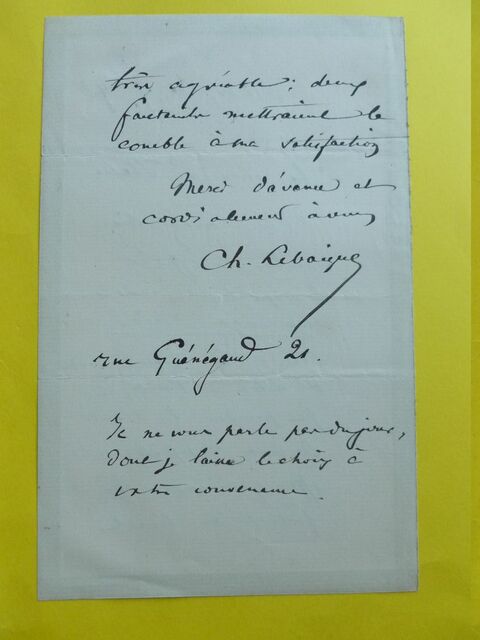 très agréable ; deux
fauteuils mettraient le
comble à ma satisfaction
Merci d'avance et
cordialement à vous
Ch. Lebaigue
rue Guénégaud 21.
Je ne vous parle pas du jour,
dont je laisse le choix à
votre convenance.